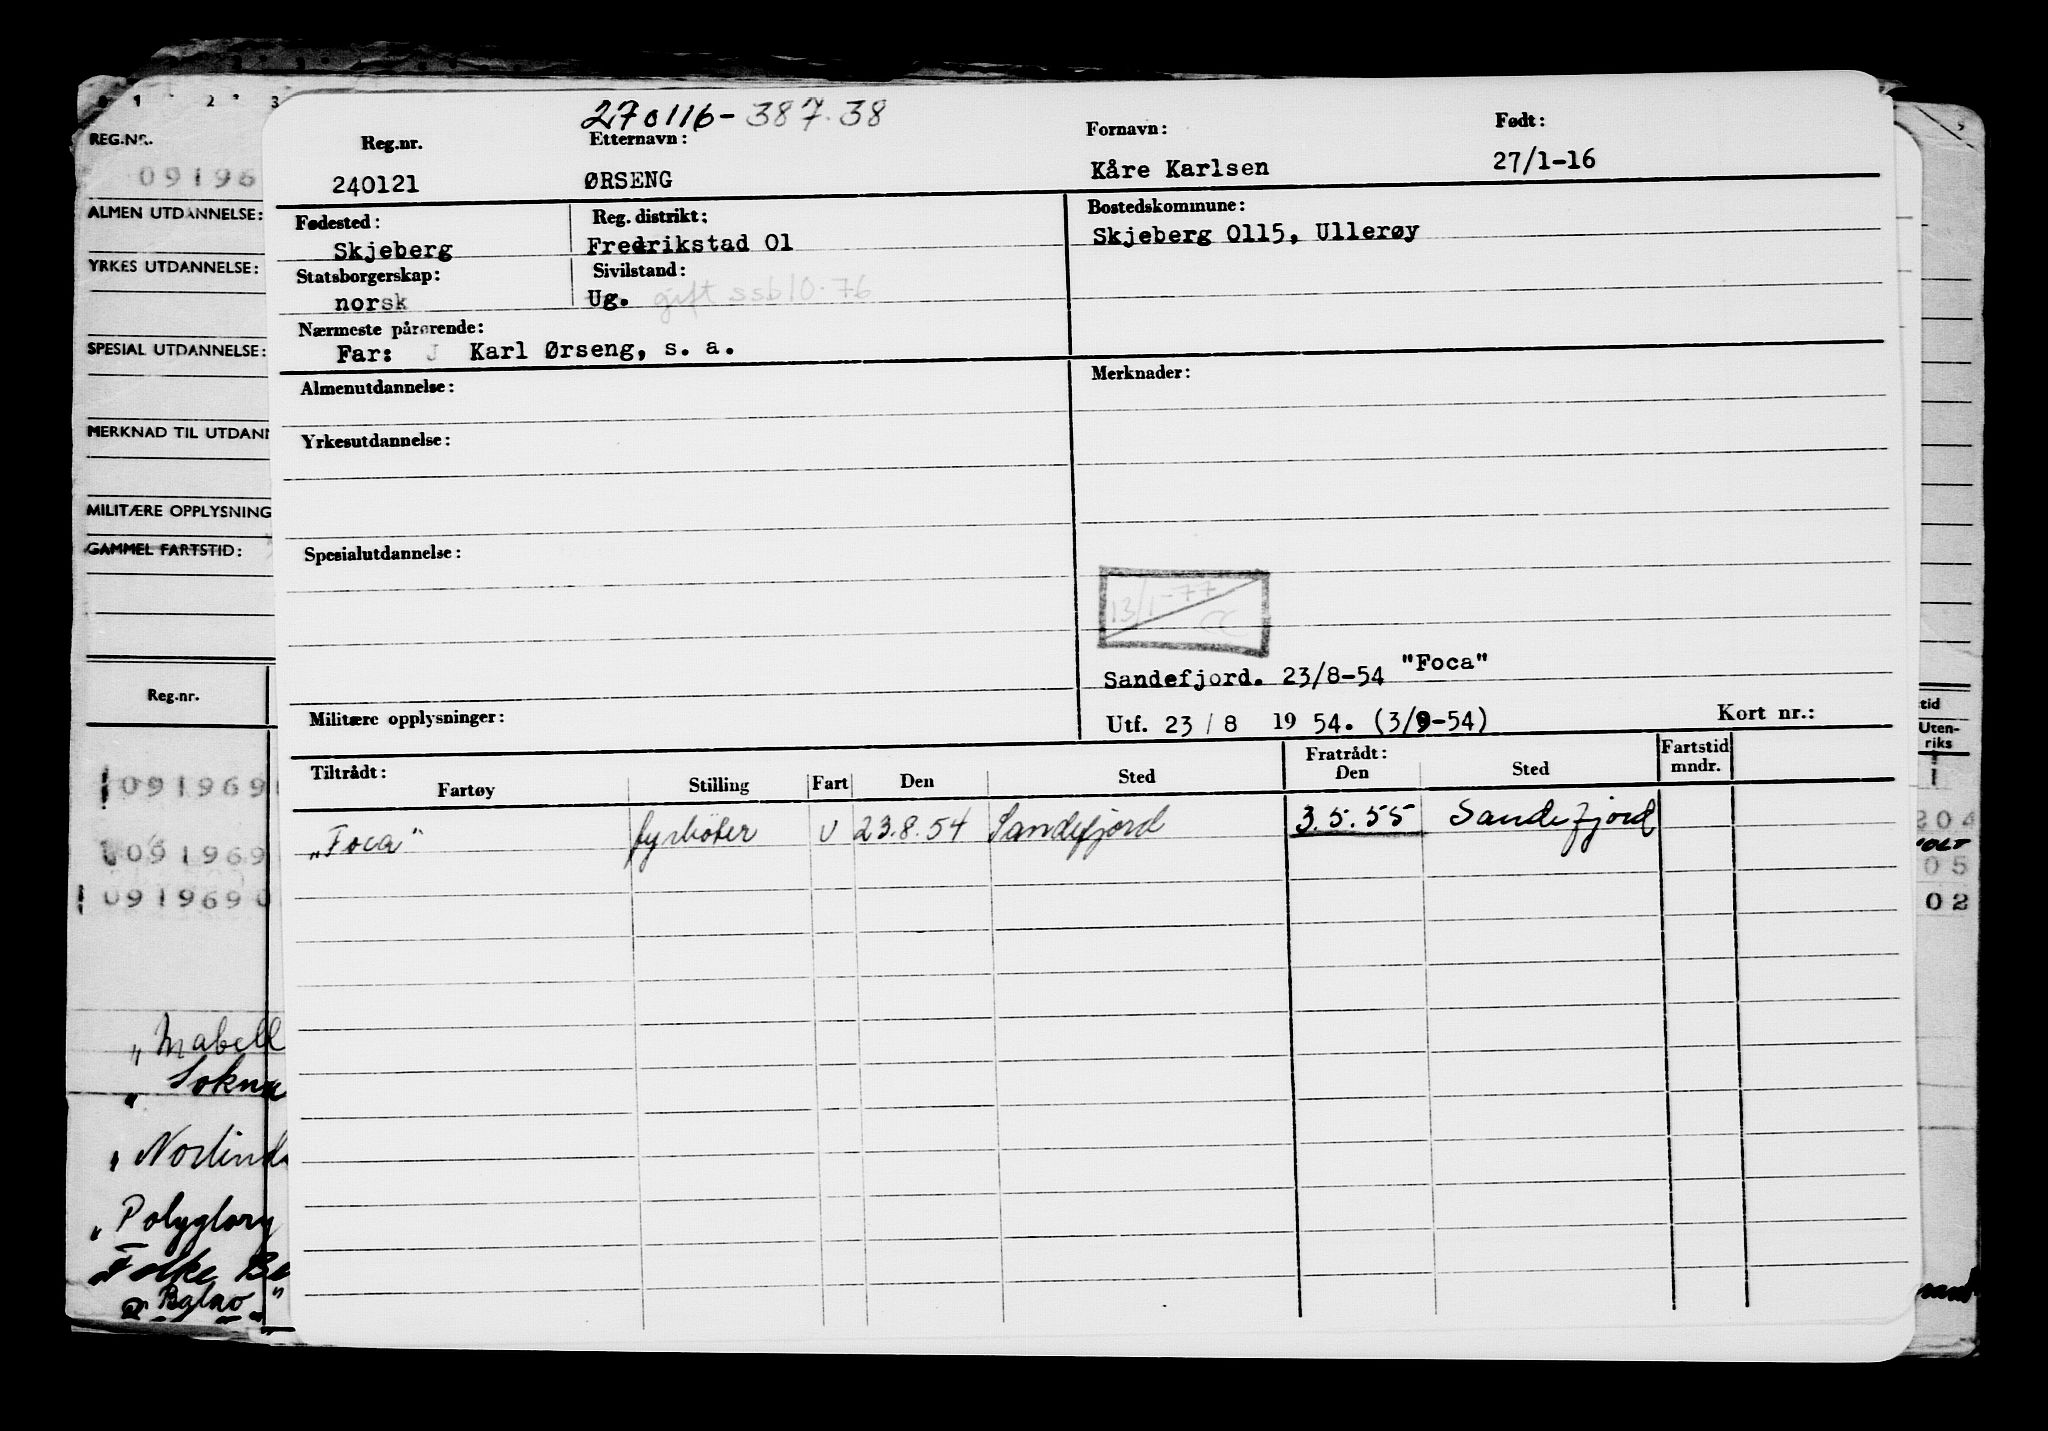 270116-387.38
Reg.nr. Etternavn: Fornavn: Født:
240121 ØRSENG Kåre Karlsen 27/1-16
Fødested: Reg. distrikt: Bostedskommune:
Skjeberg Fredrikstad 01 Skjeberg 0115, Ullerøy
Statsborgerskap: Sivilstand:
norsk Ug. gift ssb10.76
Nærmeste pårørende:
Far: J Karl Ørseng, s. a.
Almenutdannelse: Merknader:
Yrkesutdannelse:
Spesialutdannelse:
13/1-77
Sandefjord. 23/8-54 "Foca"
Militære opplysninger: Utf. 23 / 8 19 54. (3/9-54) Kort nr.:
Tiltrådt: Fratrådt: Fartstid
Fartøy Stilling Fart Den Sted Den Sted mndr.
"Foca" fyrbøter U 23.8.54 Sandefjord 3.5.55 Sandefjord
0 1 2 3
REG.NR.
09196
ALMEN UTDANNELSE:
YRKES UTDANNELSE:
SPESIAL UTDANNELSE:
MERKNAD TIL UTDANN
MILITÆRE OPPLYSNING
GAMMEL FARTSTID:
Reg.nr.
091969
091969
091969 0
"Mabell
" Sokna
" Norlind
" Polyglory
Folke Be
" Balao "
9
tid
Uten-
riks
204
05
02